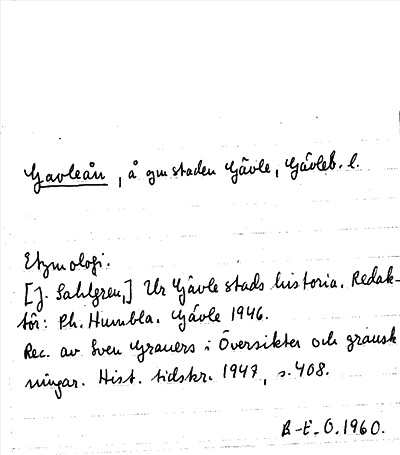 Gavleån, å gm staden Gävle, Gävleb. l.
Etymologi.
[J. Sahlgren,] Ur Gävle stads historia. Redak-
tör: Ph. Humbla. Gävle 1946.
Rec. av Sven Grauers i Översikter och gransk
ningar. Hist. tidskr. 1947, s. 408.
B-E. O. 1960.